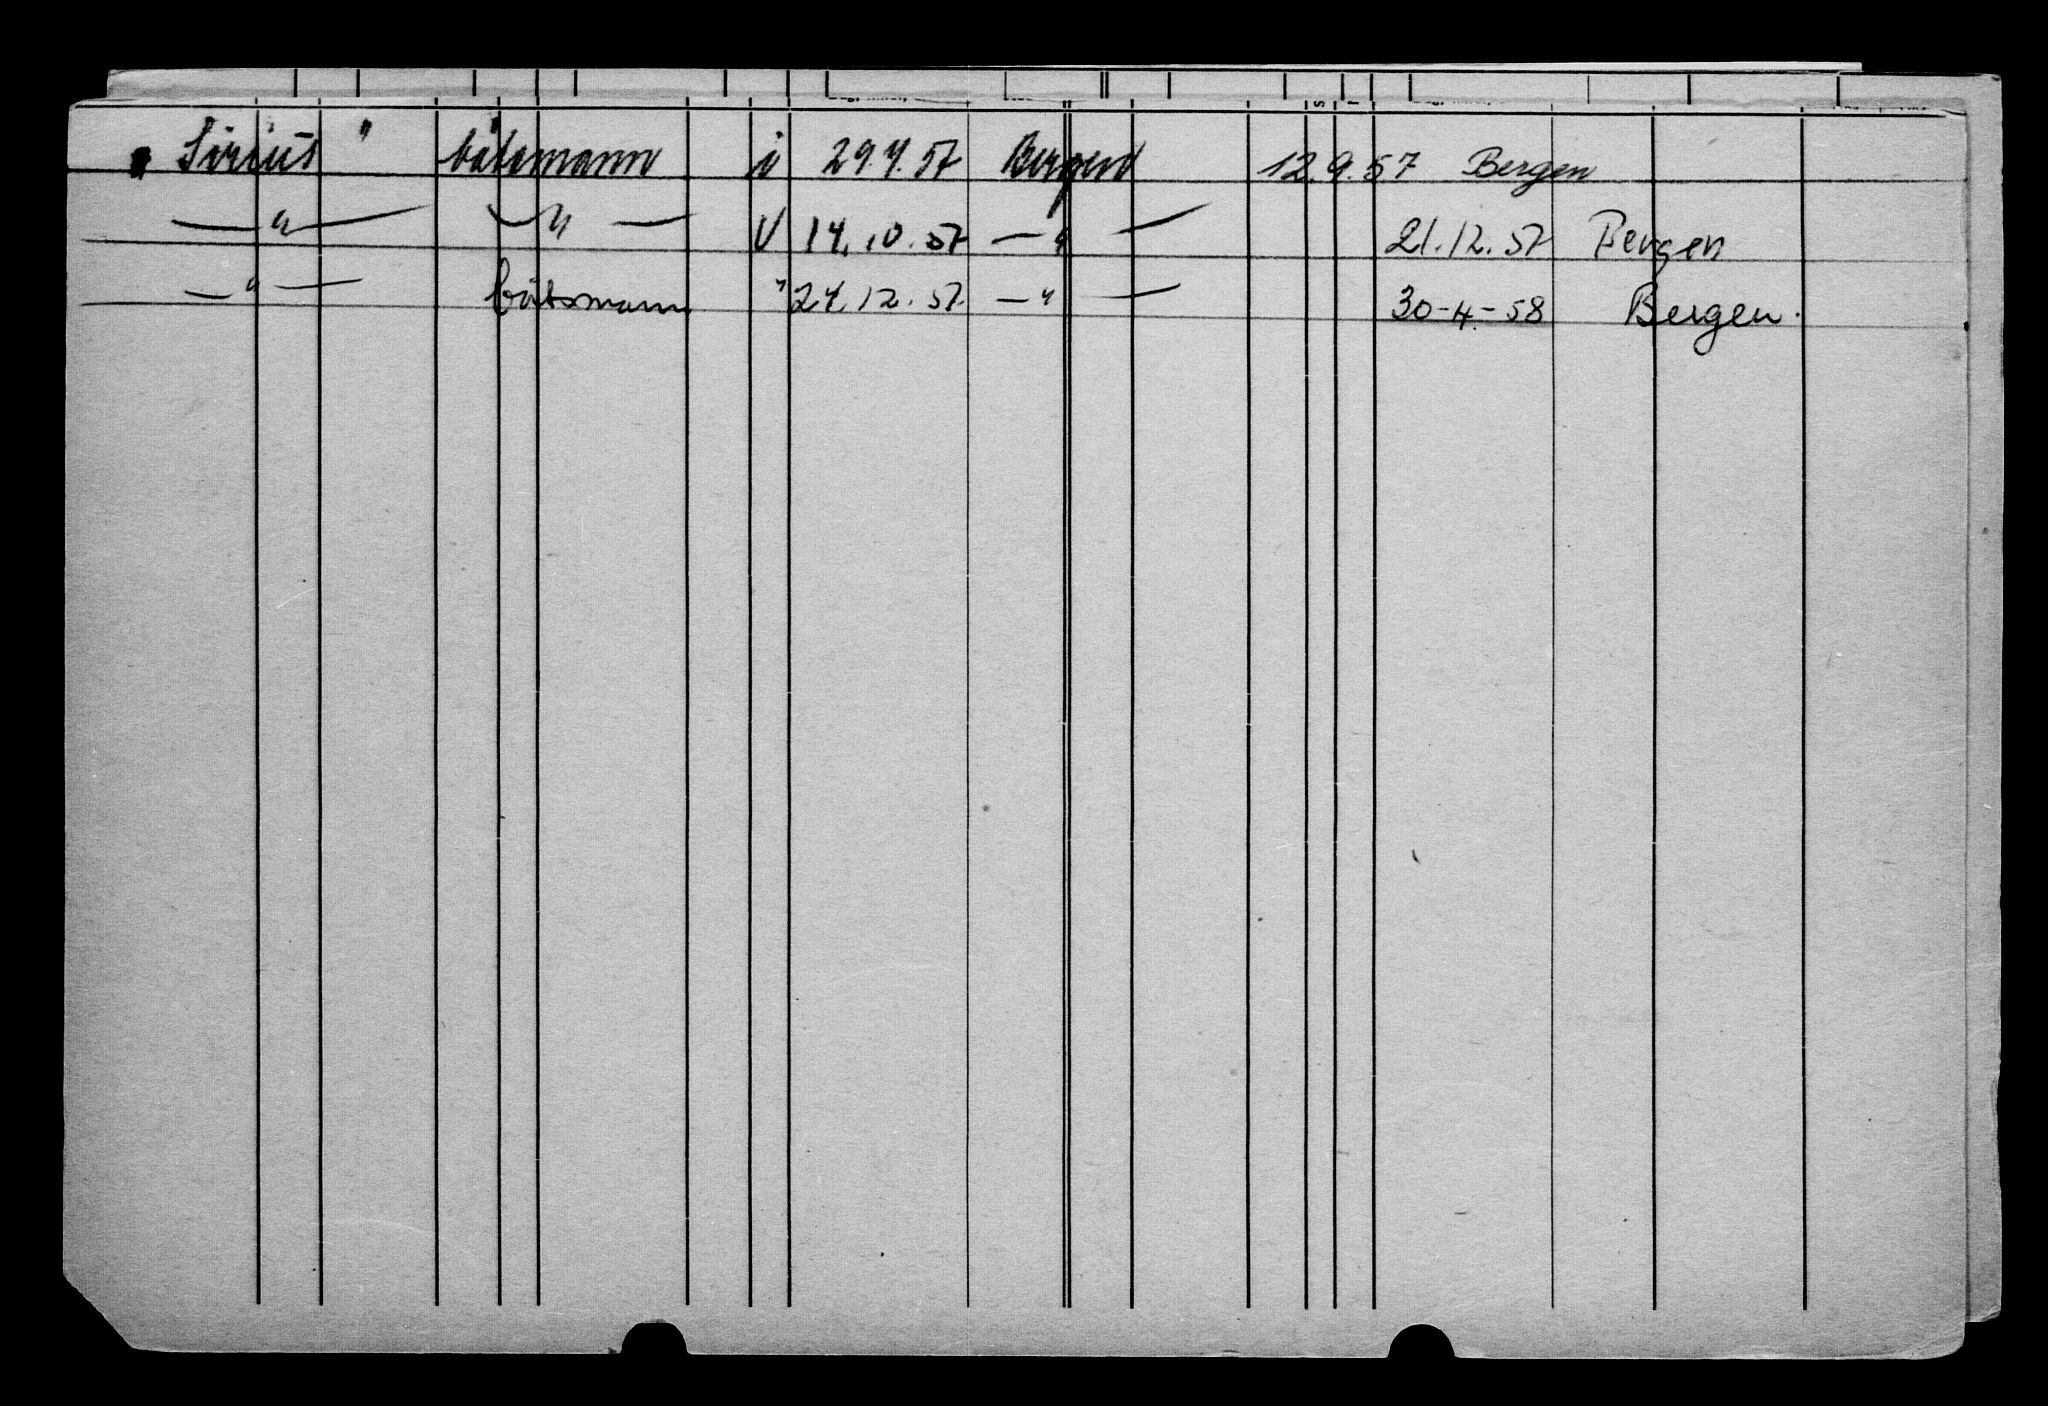 "Sirius" båtsmann u 29.4.57 Bergen 12.9.57 Bergen
—"— —"— U 14.10.57 —"— 21.12.57 Bergen
—"— båtsmann " 27.12.57 —"— 30-4-58 Bergen.